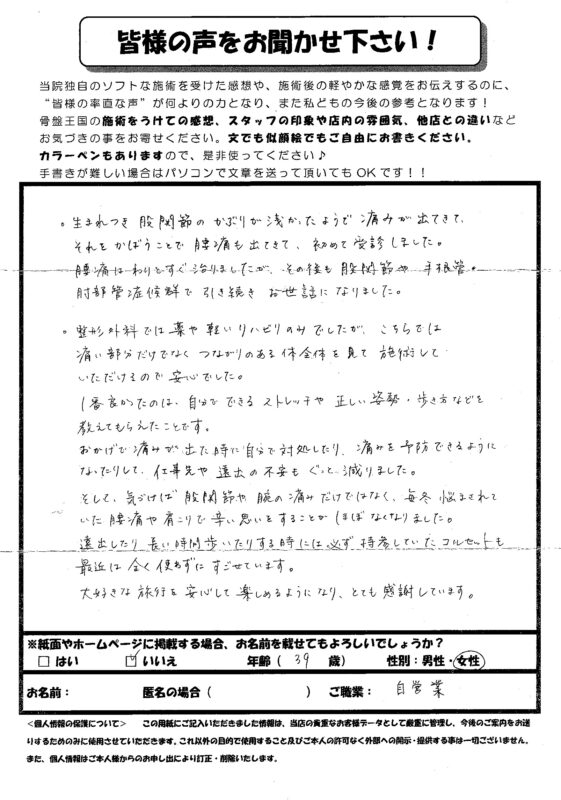 皆様の声をお聞かせ下さい！
当院独自のソフトな施術を受けた感想や、施術後の軽やかな感覚をお伝えするのに、
“皆様の率直な声”が何よりの力となり、また私どもの今後の参考となります！
骨盤王国の施術をうけての感想、スタッフの印象や店内の雰囲気、他店との違いなど
お気づきの事をお寄せください。文でも似顔絵でもご自由にお書きください。
カラーペンもありますので、是非使ってください♪
手書きが難しい場合はパソコンで文章を送って頂いてもOKです！！
。生まれつき股関節のかぶりが浅かったようで痛みが出てきて、
それをかばうことで腰痛も出てきて、初めて受診しました。
腰痛はわりとすぐ治りましたが、その後も股関節や手根管。
肘部管症候群で引き続きお世話になりました。
。整形外科では薬や軽いリハビリのみでしたが、こちらでは
痛い部分だけでなくつながりのある体全体を見て施術して
いただけるので安心でした。
1番良かったのは、自分でできるストレッチや正しい姿勢・歩き方などを
教えてもらえたことです。
おかげで痛みが出た時に自分で対処したり、痛みを予防できるように
なったりして、仕事先や遠出の不安もぐっと減りました。
そして、気づけば股関節や腕の痛みだけではなく、毎冬悩まされて
いた腰痛や肩こりで辛い思いをすることがほぼなくなりました。
遠出したり長い時間歩いたりする時には必ず持参していたコルセットも
最近は全く使わずにすごせています。
大好きな旅行を安心して楽しめるようになり、とても感謝しています。
※紙面やホームページに掲載する場合、お名前を載せてもよろしいでしょうか？
□はい ☑いいえ 年齢（39歳） 性別：男性・女性
お名前： 匿名の場合（ ） ご職業：自営業
＜個人情報の保護について＞ この用紙にご記入いただきました情報は、当店の貴重なお客様データとして厳重に管理し、今後のご案内をお送
りするためのみに使用させていただきます。これ以外の目的で使用すること及びご本人の許可なく外部への開示・提供する事は一切ございません。
また、個人情報はご本人様からのお申し出により訂正・削除いたします。